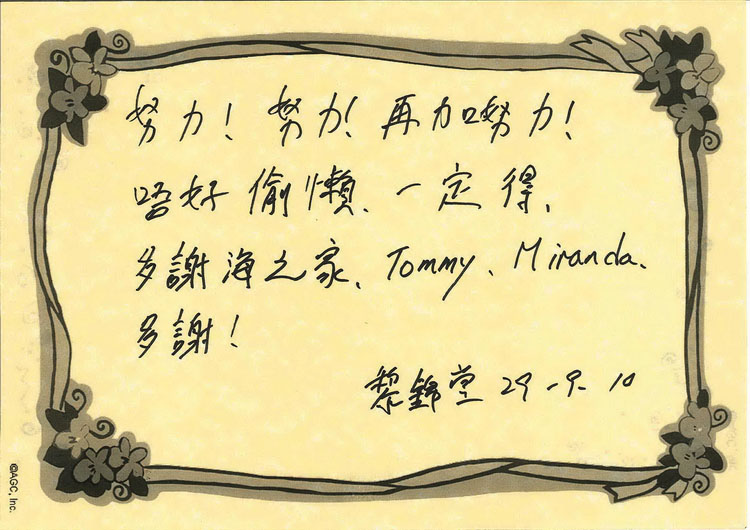 努力！努力！再加努力！
唔好偷懶、一定得、
多謝海之家、Tommy、Miranda.
多謝！
黎錦堂 29-9-10
©AGC, Inc.